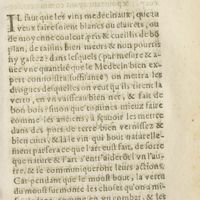 IL faut que les vins medecinaux, que tu
veux faire soient blancs ou clairets, ou
de moyenne couleur, pris & cueillis de bõ
plan, de raisins bien meurs & non pourris
ny gastez: dans lesquels (par mesure & a-
uec vne quantité que le Medecin bien ex-
pert connoistra suffisante) on mettra les
drogues desquelles on veut qu'ils tirent la
vertu, en vn vaisseau bien net, & fait de
bon bois: sinon que tu aimes mieux faire
comme les anciens, à sçauoir les mettre
dans des pots de terre bien vernissez &
bien cuits, & là le vin qui bout naturelle-
ment parfera ce que l'art eust fait, de sorte
que nature & l'art s'entr'aideront l'vn l'au-
tre, & se communiqueront leurs actions.
Car pendant que le moust bout, la vertu
du moust surmonte les choses qu'on a mi-
comme en vn combat, & les